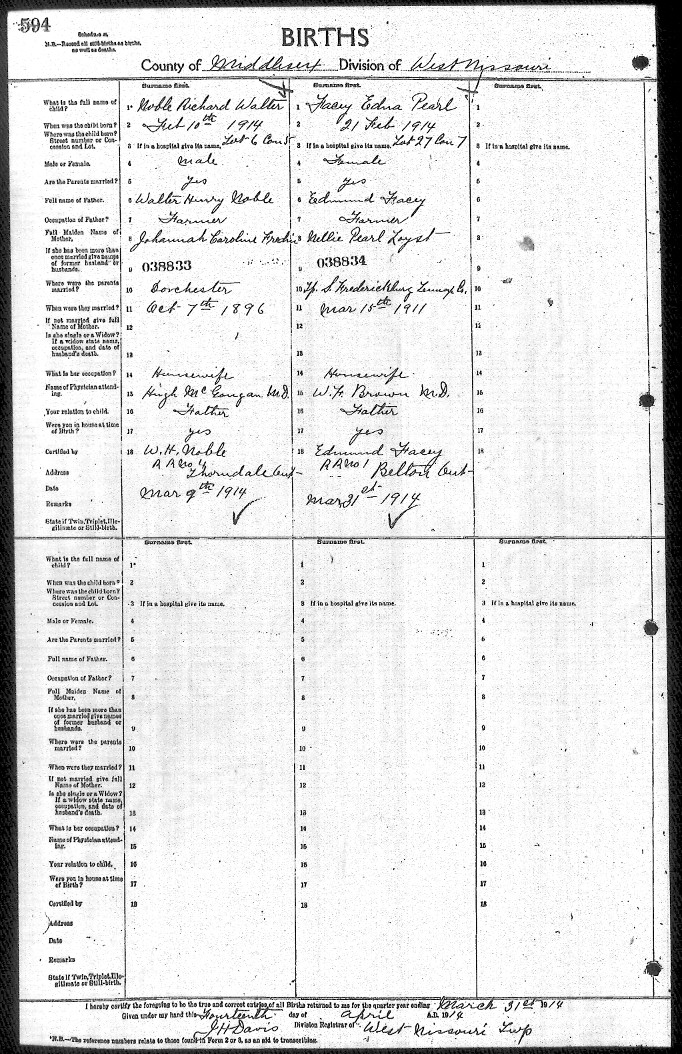 594
Schedule A.
N.B.—Record all still-births as births,
as well as deaths.
BIRTHS
County of Middlesex Division of West Nissouri
Surname first. Surname first. Surname first.
What is the full name of child? 1* Noble Richard Walter 1 Facey Edna Pearl 1
When was the child born? 2 Feb 10th 1914 2 21 Feb 1914 2
Where was the child born? Street number or Concession and Lot. 3 If in a hospital give its name, Lot 6 Con 5 3 If in a hospital give its name, Lot 27 Con 7 3 If in a hospital give its name.
Male or Female. 4 Male 4 Female 4
Are the Parents married? 5 yes 5 yes 5
Full name of Father. 6 Walter Henry Noble 6 Edmund Facey 6
Occupation of Father? 7 Farmer 7 Farmer 7
Full Maiden Name of Mother. 8 Johannah Caroline 8 Nellie Pearl Loyst 8
If she has been more than once married give names of former husband or husbands. 9 038833 9 038834 9
Where were the parents married? 10 Dorchester 10 Tp. S. Fredericksburg Lennox Co. 10
When were they married? 11 Oct 7th 1896 11 Mar 15th 1911 11
If not married give full Name of Mother. 12 12 12
Is she single or a Widow? If a widow state name, occupation, and date of husband's death. 13 13 13
What is her occupation? 14 Housewife 14 Housewife 14
Name of Physician attending. 15 Hugh McGougan M.D. 15 W.H. Brown M.D. 15
Your relation to child. 16 Father 16 Father 16
Were you in house at time of Birth? 17 yes 17 yes 17
Certified by 18 W.H. Noble 18 Edmund Facey 18
Address R R No 1 Thorndale Ont R R No 1 Belton Ont
Date Mar 9th 1914 Mar 31st 1914
Remarks
State if Twin, Triplet, Illegitimate or Still-birth.
Surname first. Surname first. Surname first.
What is the full name of child? 1* 1 1
When was the child born? 2 2 2
Where was the child born? Street number or Concession and Lot. 3 If in a hospital give its name. 3 If in a hospital give its name. 3 If in a hospital give its name.
Male or Female. 4 4 4
Are the Parents married? 5 5 5
Full name of Father. 6 6 6
Occupation of Father? 7 7 7
Full Maiden Name of Mother. 8 8 8
If she has been more than once married give names of former husband or husbands. 9 9 9
Where were the parents married? 10 10 10
When were they married? 11 11 11
If not married give full Name of Mother. 12 12 12
Is she single or a Widow? If a widow state name, occupation, and date of husband's death. 13 13 13
What is her occupation? 14 14 14
Name of Physician attending. 15 15 15
Your relation to child. 16 16 16
Were you in house at time of Birth? 17 17 17
Certified by 18 18 18
Address
Date
Remarks
State if Twin, Triplet, Illegitimate or Still-birth.
I hereby certify the foregoing to be the true and correct entries of all Births returned to me for the quarter year ending March 31st 1914
Given under my hand this Fourteenth day of April A.D. 1914
J H Davis Division Registrar of West Nissouri Twp
*N.B.—The reference numbers relate to those found in Form 2 or 3, as an aid to transcribing.